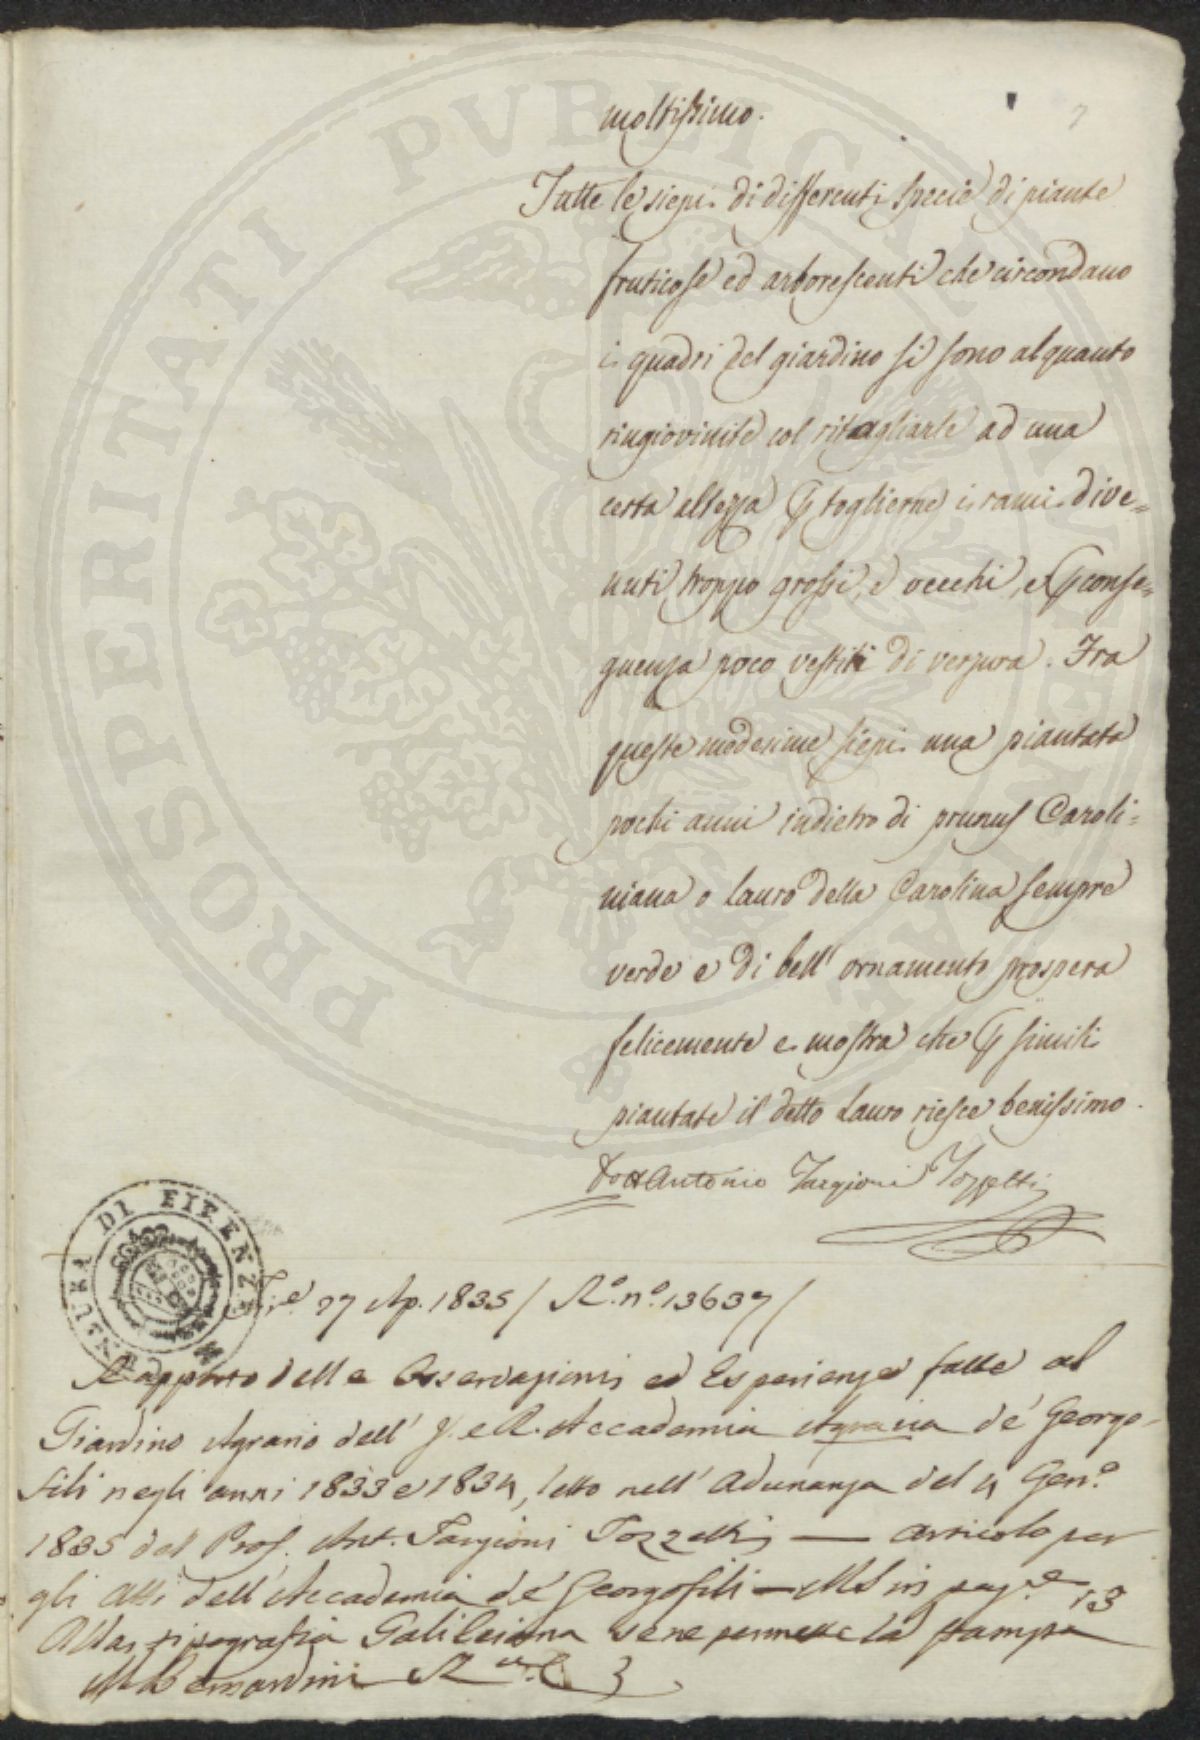 moltissimo.
Tutte le siepi di differenti specie di piante
fruticose ed arborescenti che circondano
i quadri del giardino si sono alquanto
ringiovinite col ritagliarle ad una
certa altezza p toglierne i rami dive=
nuti troppo grossi, e vecchi, e p conse=
guenza poco vestiti di verzura. Fra
queste medesime siepi una piantata
pochi anni indietro di prunus Caroli=
niana o Lauro della Carolina sempre
verde e di bell' ornamento prospera
felicemente e mostra che p simili
piantate il detto Lauro riesce benissimo.
Dott Antonio Targioni Tozzetti
PROSPERITATI PUBLICAE AUGENDAE
CENSURA DI FIRENZE
Fire 27 Ap. 1835 / Ro. no. 13637 /
Rapporto delle Osservazioni ed Esperienze fatte al
Giardino Agrario dell' I. e R. Accademia Agraria de' Georgo-
fili negli anni 1833 e 1834, letto nell' Adunanza del 4 Geno.
1835 dal Prof. Ant. Targioni Tozzetti — articolo per
gli Atti dell' Accademia de' Georgofili — MS in pag.e 13
Alla tipografia Galileiana se ne permette la stampa
M Bernardini